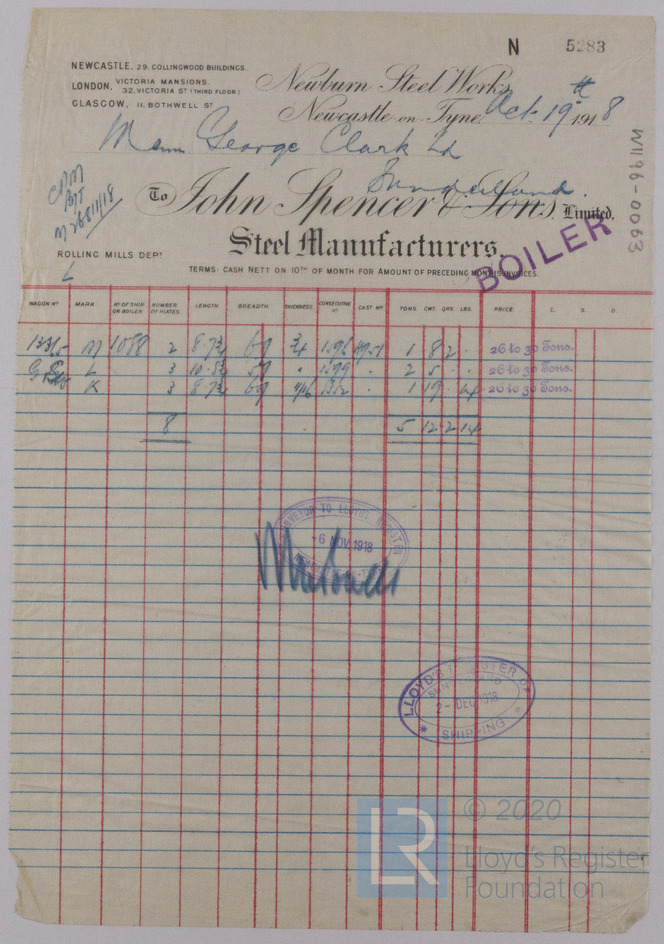 N 5283
NEWCASTLE, 29, COLLINGWOOD BUILDINGS.
LONDON, VICTORIA MANSIONS.
32, VICTORIA ST (THIRD FLOOR)
GLASGOW, 11, BOTHWELL ST
Newburn Steel Works,
Newcastle-on-Tyne, Oct. 19th 1918
W1196-0063
George Clark Ld
Sunderland.
To John Spencer & Sons, Limited,
Steel Manufacturers,
BOILER
ROLLING MILLS DEPT
L
TERMS: CASH NETT ON 10TH OF MONTH FOR AMOUNT OF PRECEDING MONTHS INVOICES.
WAGON No MARK No OF SHIP OR BOILER NUMBER OF PLATES LENGTH BREADTH THICKNESS CONSECUTIVE No CAST No TONS. CWT. QRS. LBS. PRICE. L. S. D.
M 1088 2 8·7¾ 69 ¾ 1 8 2 · 26 to 30 Tons.
L 3 2 5 · · 26 to 30 Tons.
K 3 8·7¾ 69 1 19 · 14 26 to 30 Tons.
8 5 12 2 14
SURVEYOR TO LLOYD'S REGISTER
-6 NOV 1918
LLOYD'S REGISTER OF
SUNDERLAND
2-DEC 1918
* SHIPPING *
LR
© 2020
Lloyd's Register
Foundation